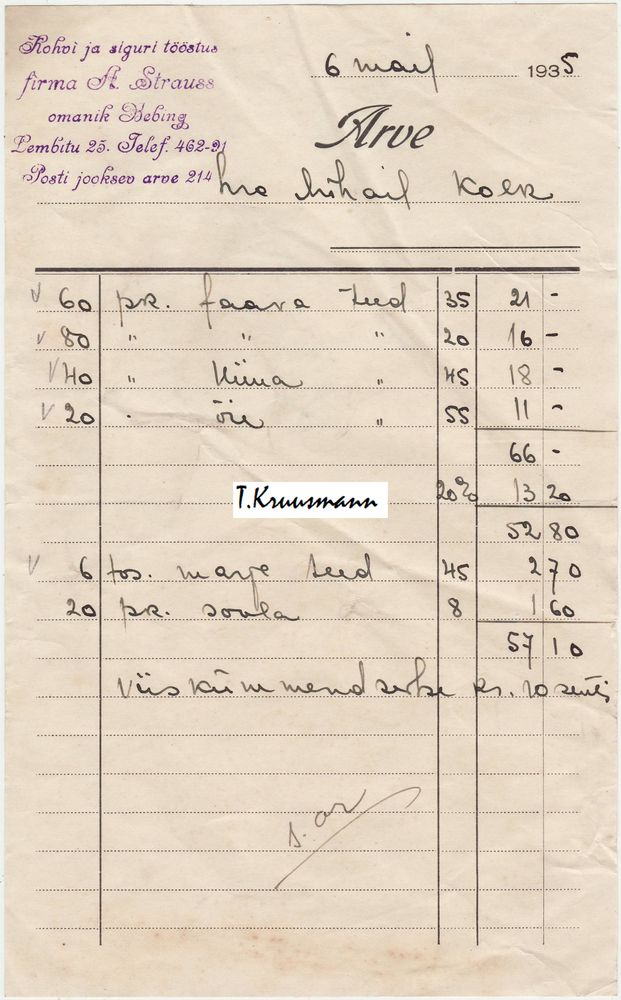 Kohvi ja siguri tööstus
firma A. Strauss
omanik Bebing
Lembitu 25. Telef. 462-91
Posti jooksev arve 214
6 mail 1935
Arve
hra Mihail Kolk
60 pk. faava teed 35 21 -
80 " " " 20 16 -
40 " Hiina " 45 18 -
20 " õie " 55 11 -
66 -
T.Kruusmann
20% 13 20
52 80
6 tos. marje teed 45 2 70
20 pk. soola 8 1 60
57 10
Viiskümmend seitse kr. 10 senti